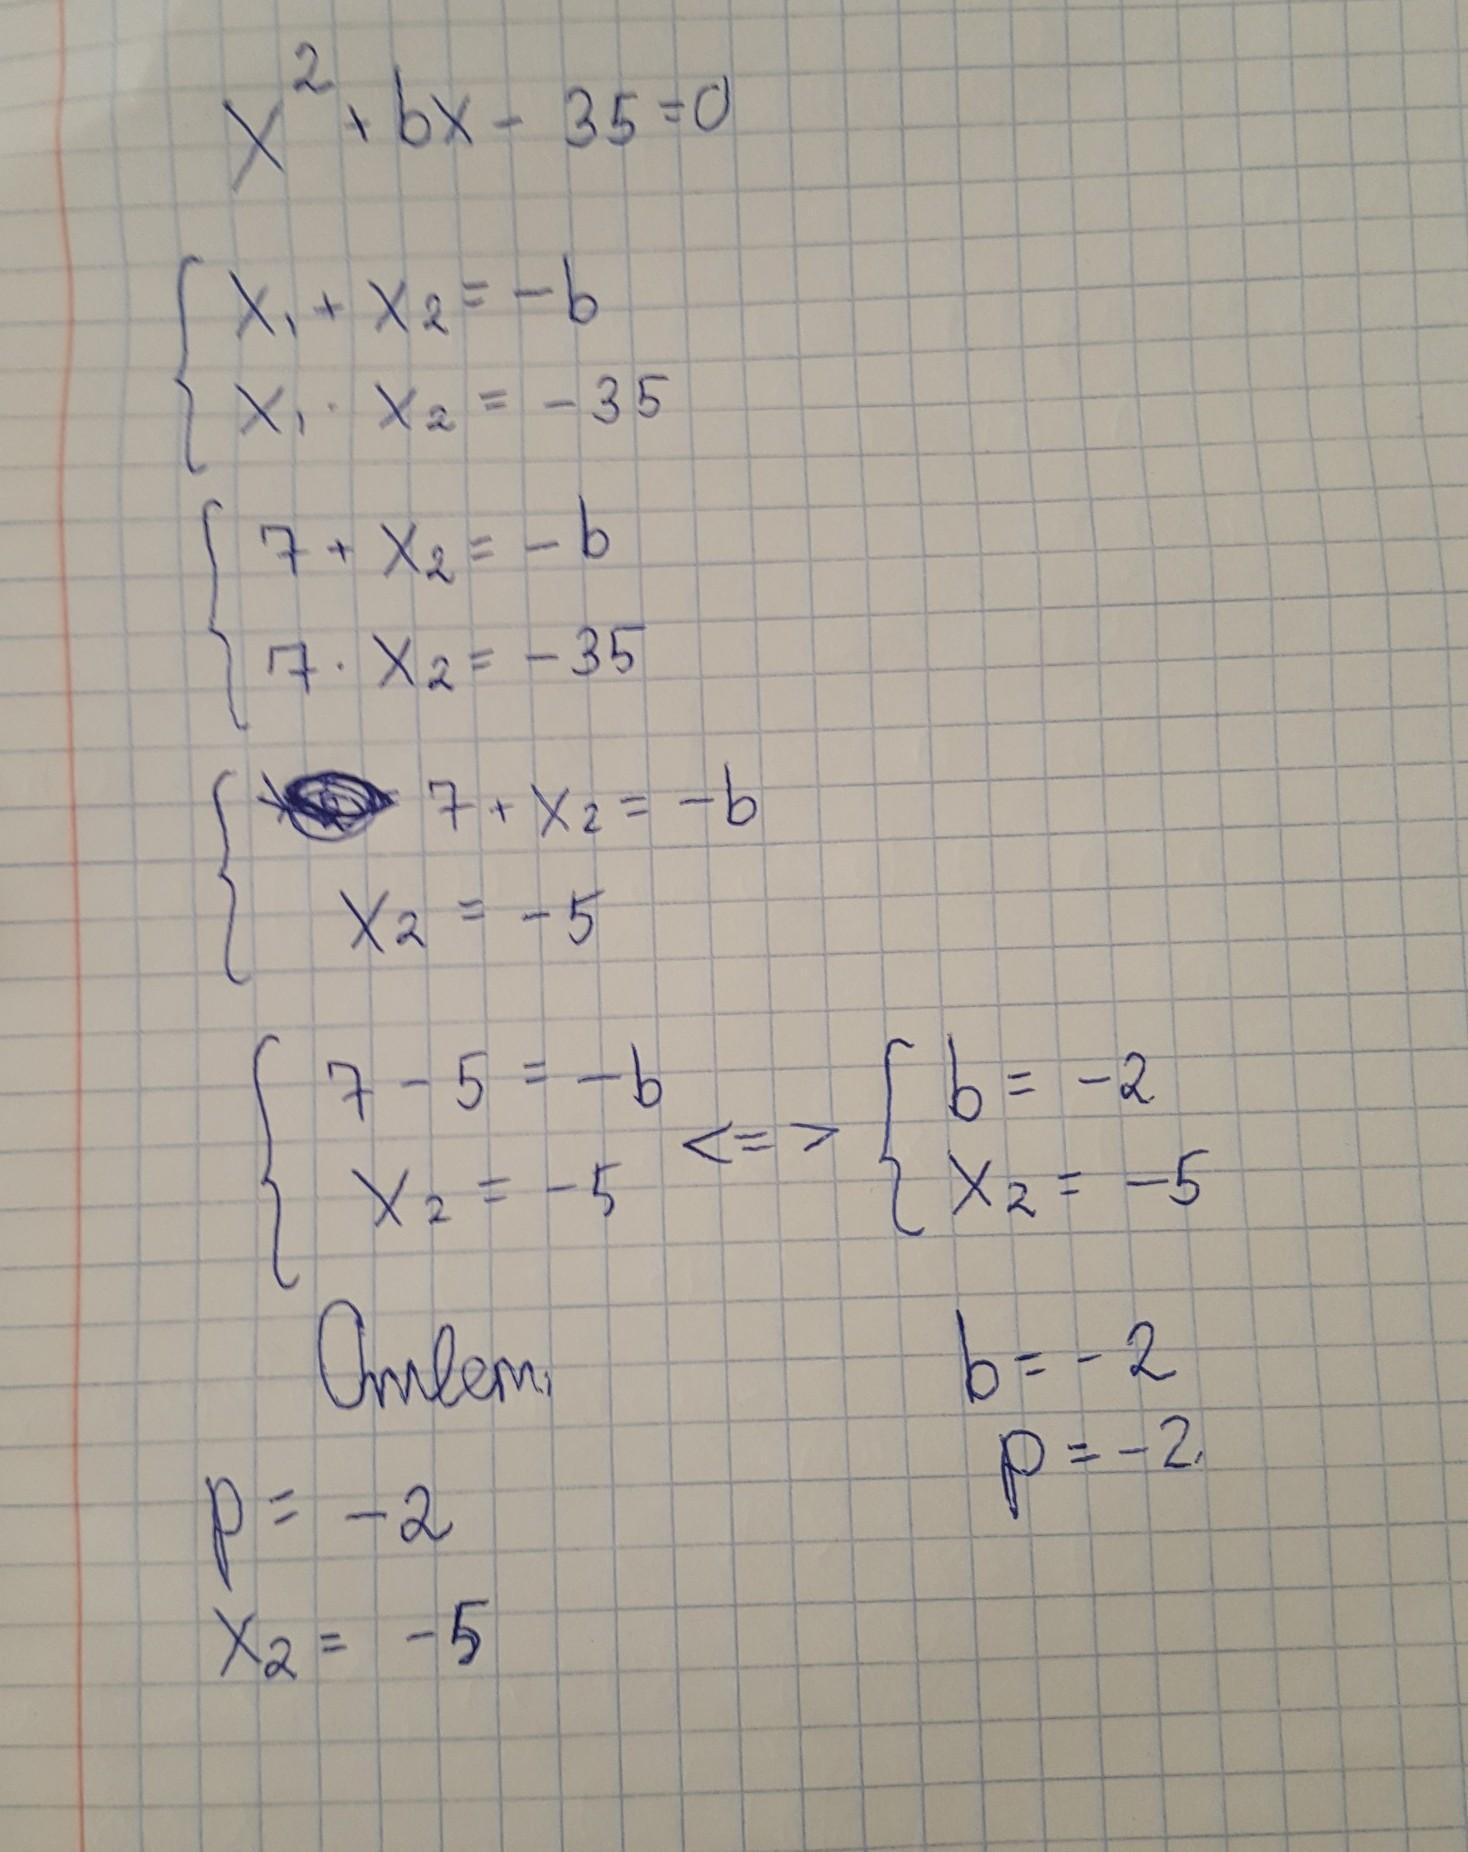 x² + bx - 35 = 0
x₁ + x₂ = -b
x₁ · x₂ = -35
7 + x₂ = -b
7 · x₂ = -35
7 + x₂ = -b
x₂ = -5
7 - 5 = -b <=> b = -2
x₂ = -5 x₂ = -5
Ответ. b = -2
p = -2.
p = -2
x₂ = -5